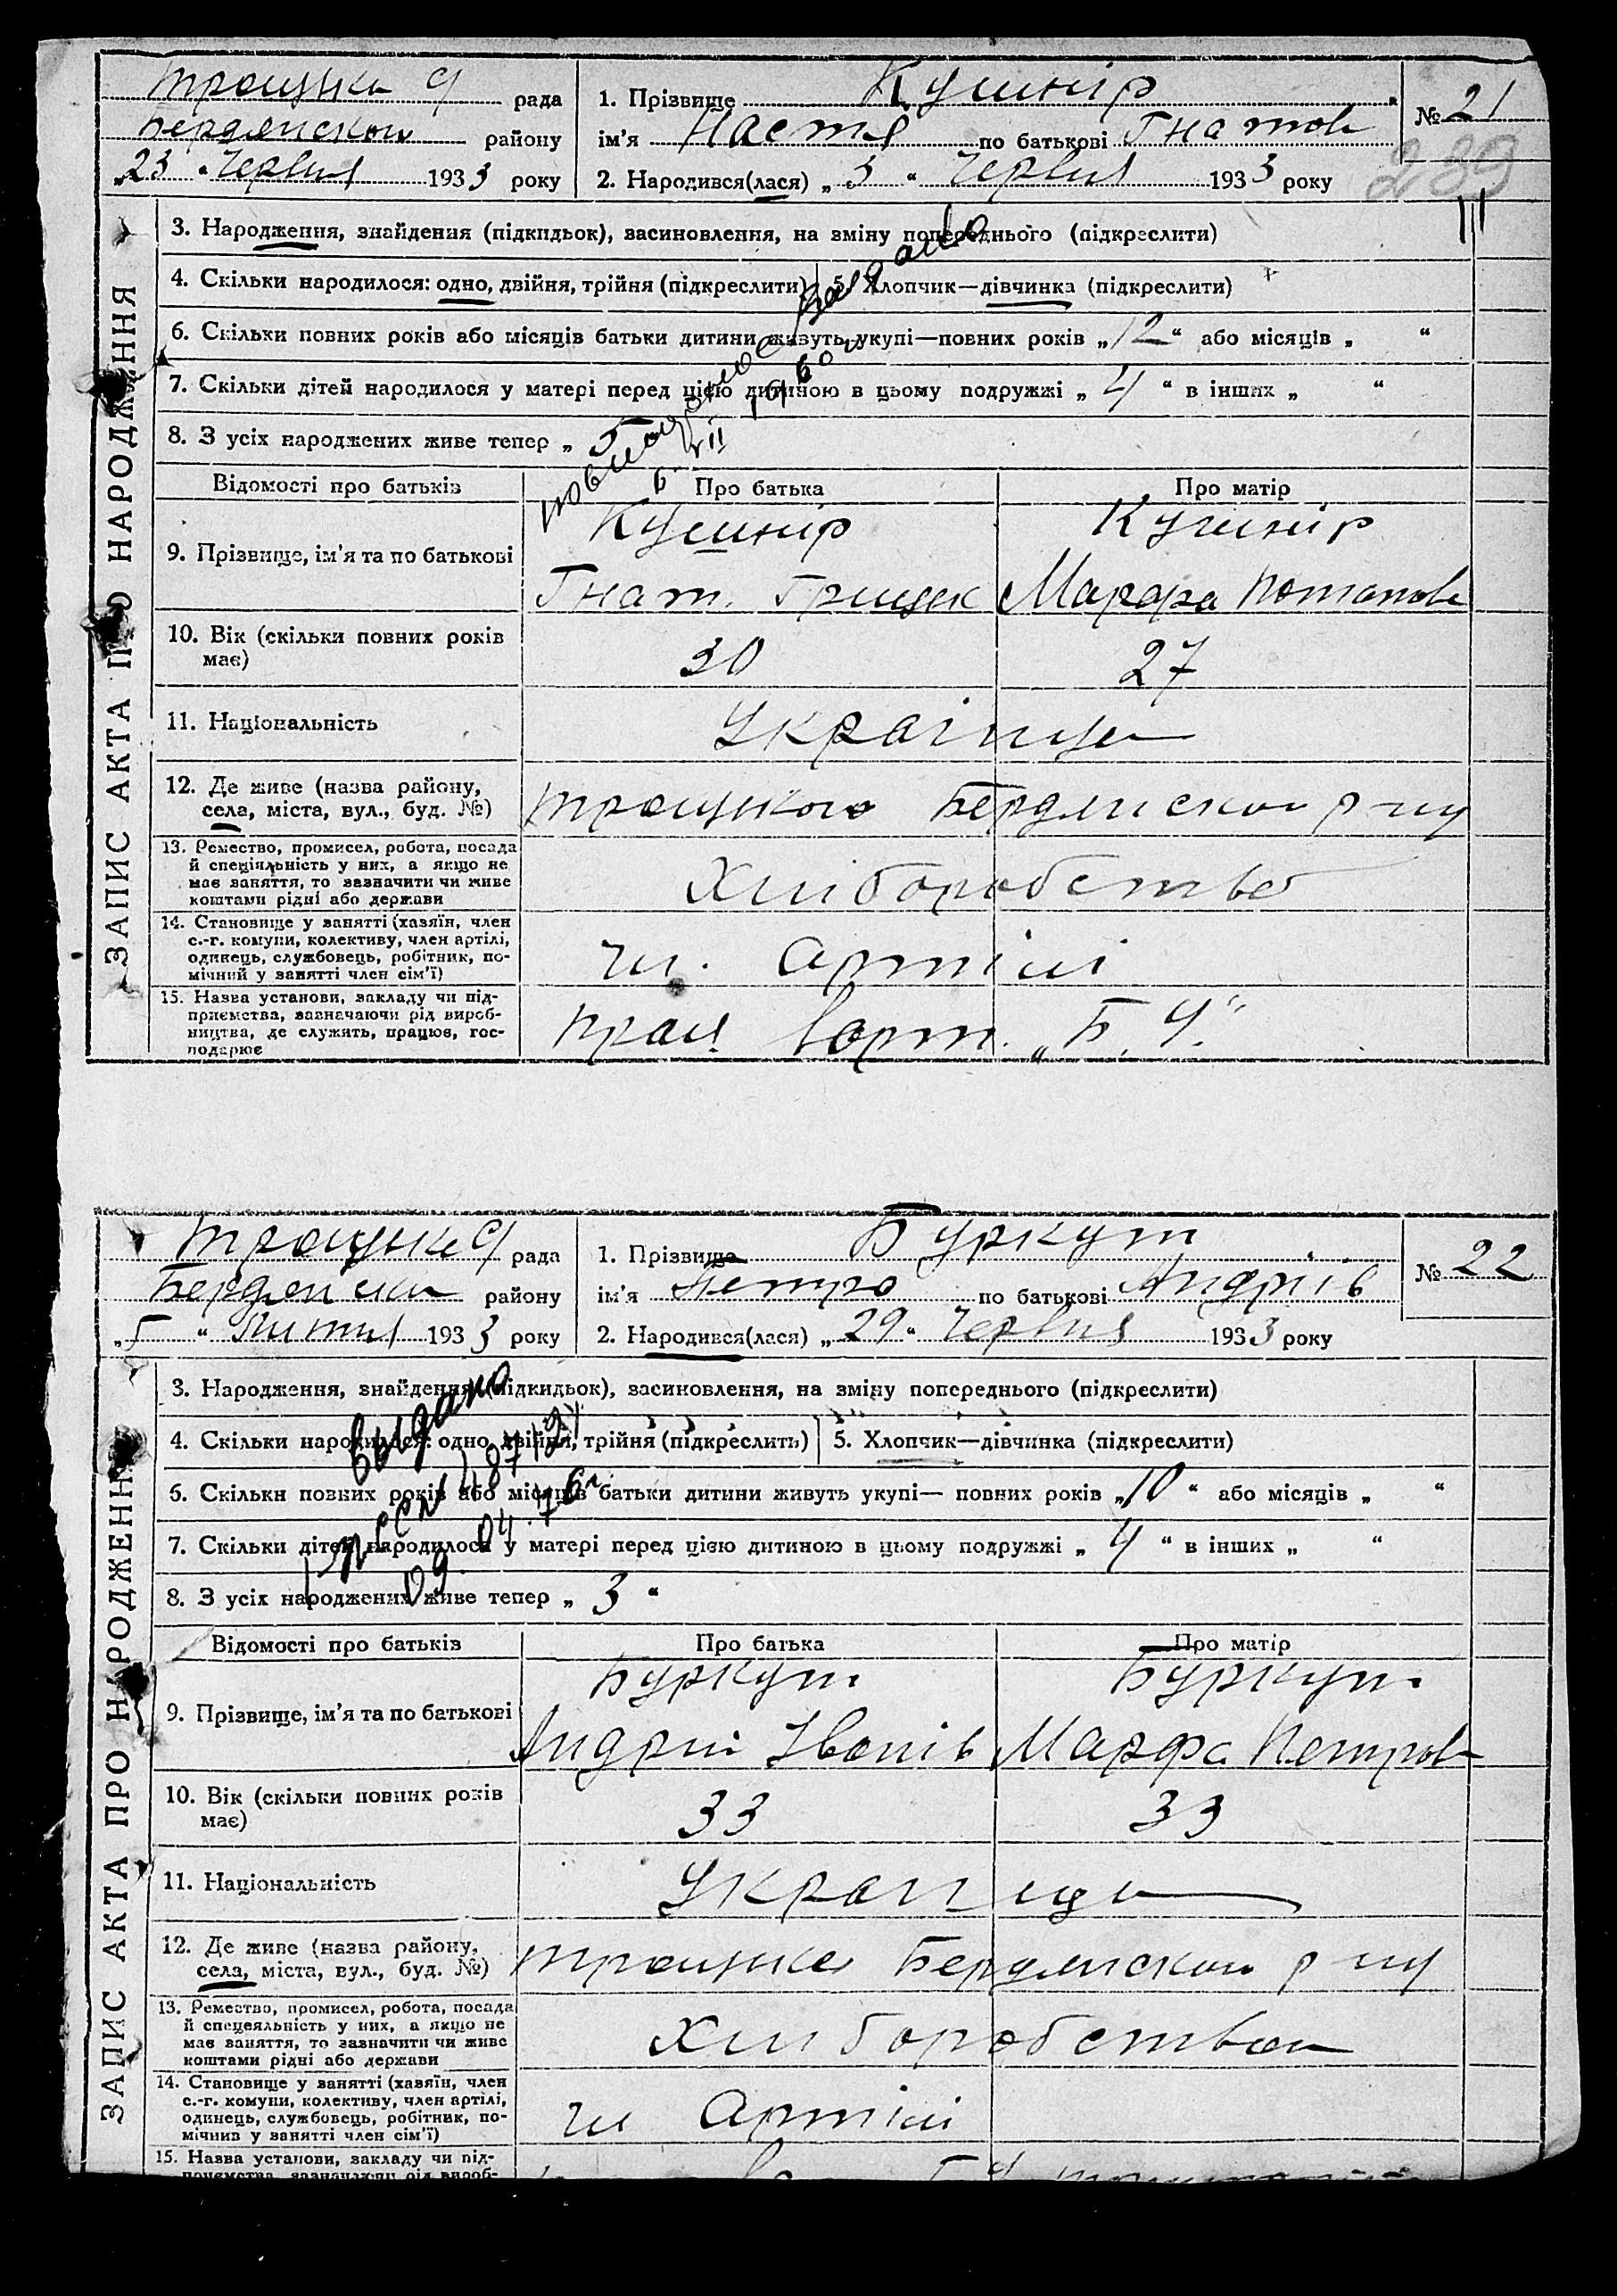 Троцька С/ рада
Бердянской району
„23 “ Червня 1933 року
1. Прізвище Кушнір
ім'я Настя по батькові Гнатов
2. Народився(лася) „ 3 “ Червня 1933 року
№ 21
239
ЗАПИС АКТА ПРО НАРОДЖЕННЯ
3. Народження, знайдення (підкидьок), засиновлення, на зміну попереднього (підкреслити)
4. Скільки народилося: одно, двійня, трійня (підкреслити) 5. Хлопчик—дівчинка (підкреслити)
6. Скільки повних років або місяців батьки дитини живуть укупі—повних років „ 12 “ або місяців „ “
7. Скільки дітей народилося у матері перед цією дитиною в цьому подружжі „ 4 “ в інших „ “
8. З усіх народжених живе тепер „ 5
Відомості про батьків Про батька Про матір
9. Прізвище, ім'я та по батькові
Кушнір Кушнір
Гнат. Грицьк Марфа Потапов
10. Вік (скільки повних років
має)
30 27
11. Національність Українци
12. Де живе (назва району,
села, міста, вул., буд. №)
Троцького Бердянской р-ну
13. Ремество, промисел, робота, посада
й спеціяльність у них, а якщо не
має заняття, то зазначити чи живе
коштами рідні або держави
Хліборобство
14. Становище у занятті (хазяїн, член
с.-г. комуни, колективу, член артілі,
одинець, службовець, робітник, по-
мічний у занятті член сім'ї)
чл. Артілі
15. Назва установи, закладу чи під-
приємства, зазначаючи рід вироб-
ництва, де служить, працює, гос-
подарює
прац. в арт. „Б. Ч.“
Троцьке С/ рада
Бердянски району
„5 “ Липня 1933 року
1. Прізвище Буркут
ім'я Петро по батькові Андріїв
2. Народився(лася) „ 29 “ Червня 1933 року
№ 22
ЗАПИС АКТА ПРО НАРОДЖЕННЯ
3. Народження, знайдення (підкидьок), засиновлення, на зміну попереднього (підкреслити)
4. Скільки народилося: одно, двійня, трійня (підкреслить) 5. Хлопчик—дівчинка (підкреслити)
6. Скільки повних років або місяців батьки дитини живуть укупі— повних років „ 10 “ або місяців „ “
7. Скільки дітей народилося у матері перед цією дитиною в цьому подружжі „ 4 “ в інших „ “
8. З усіх народжених живе тепер „ 3 “
выдано
09.04.76г
Відомості про батьків Про батька Про матір
9. Прізвище, ім'я та по батькові
Буркут Буркут
Андрій Іванів Марфа Петров
10. Вік (скільки повних років
має)
33 33
11. Національність Українци
12. Де живе (назва району,
села, міста, вул., буд. №)
Троцьке Бердянской р-ну
13. Ремество, промисел, робота, посада
й спецеяльність у них, а якщо не
має заняття, то зазначити чи живе
коштами рідні або держави
Хліборобство
14. Становище у занятті (хазяїн, член
с.-г. комуни, колективу, член артілі,
одинець, службовець, робітник, по-
мічнив у занятті член сім'ї)
чл Артілі
15. Назва установи, закладу чи під-
приємства, зазначаючи рід вироб-